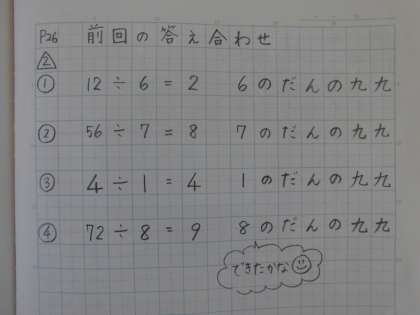 P26 前回の答え合わせ
2
① 12÷6=2 6のだんの九九
② 56÷7=8 7のだんの九九
③ 4÷1=4 1のだんの九九
④ 72÷8=9 8のだんの九九
できたかな